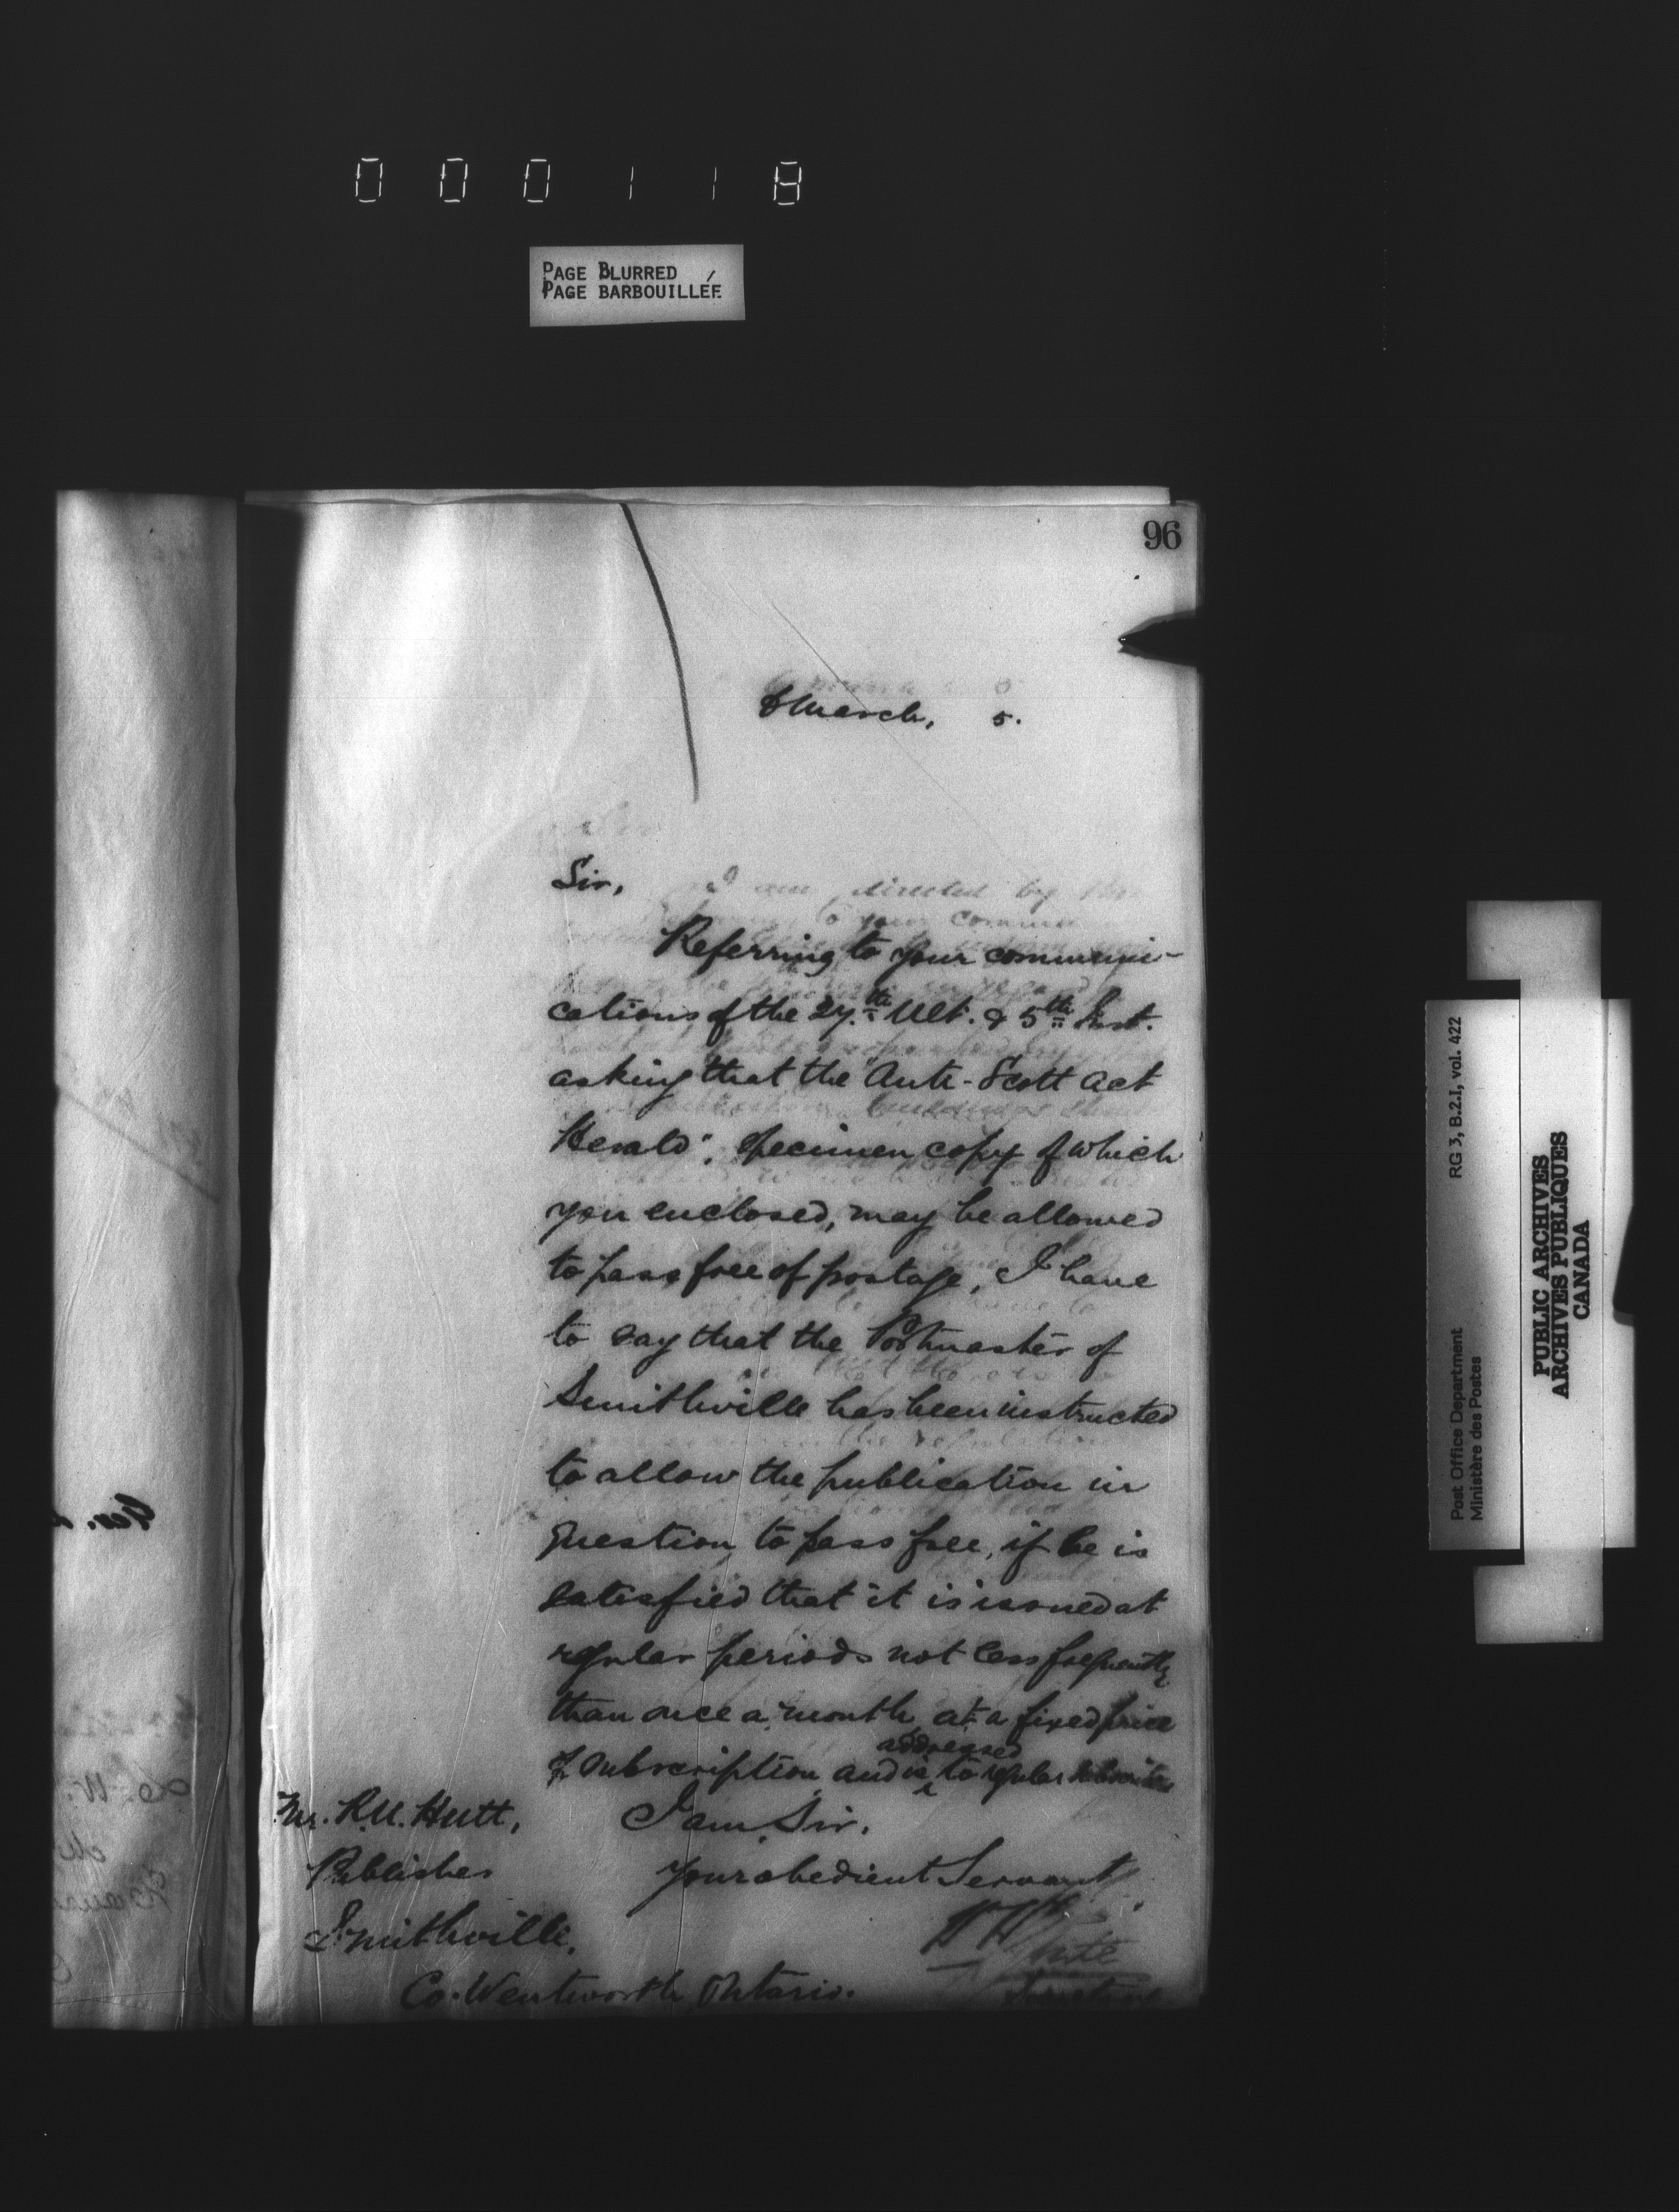 000118
PAGE BLURRED
PAGE BARBOUILLÉE
96
6 March, 5.
Sir,
Referring to your communi-
cations of the 27.th Ult. & 5th Inst.
asking that the "Anti-Scott Act
Herald", specimen copy of which
you enclosed, may be allowed
to pass free of postage, I have
to say that the Postmaster of
Smithville has been instructed
to allow the publication in
question to pass free, if he is
satisfied that it is issued at
regular periods not less frequently
than once a month, at a fixed price
of subscription and is addressed to regular subscribers
I am, Sir,
Your obedient Servant
Mr. R.U. Hutt,
Publisher
Smithville,
Co. Wentworth Ontario.
White
Secretary
Post Office Department
Ministère des Postes
RG 3, B.2.I, vol. 422
PUBLIC ARCHIVES
ARCHIVES PUBLIQUES
CANADA